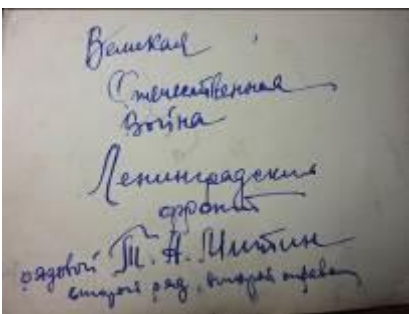 Великая
Отечественная
Война
Ленинградский
фронт
рядовой Т. А. Митин
второй ряд, второй справа